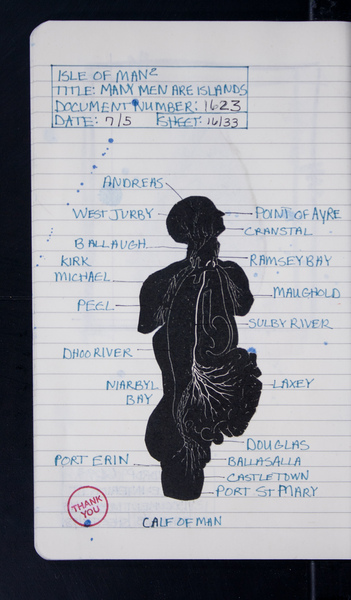 ISLE OF MAN²
TITLE: MANY MEN ARE ISLANDS
DOCUMENT NUMBER: 1623
DATE: 7/5 SHEET: 16/33
ANDREAS
WEST JURBY
POINT OF AYRE
CRANSTAL
BALLAUGH
KIRK
MICHAEL
RAMSEY BAY
MAUGHOLD
PEEL
SULBY RIVER
DHOO RIVER
NIARBYL
BAY
LAXEY
DOUGLAS
PORT ERIN
BALLASALLA
CASTLETOWN
PORT ST MARY
THANK
YOU
CALF OF MAN